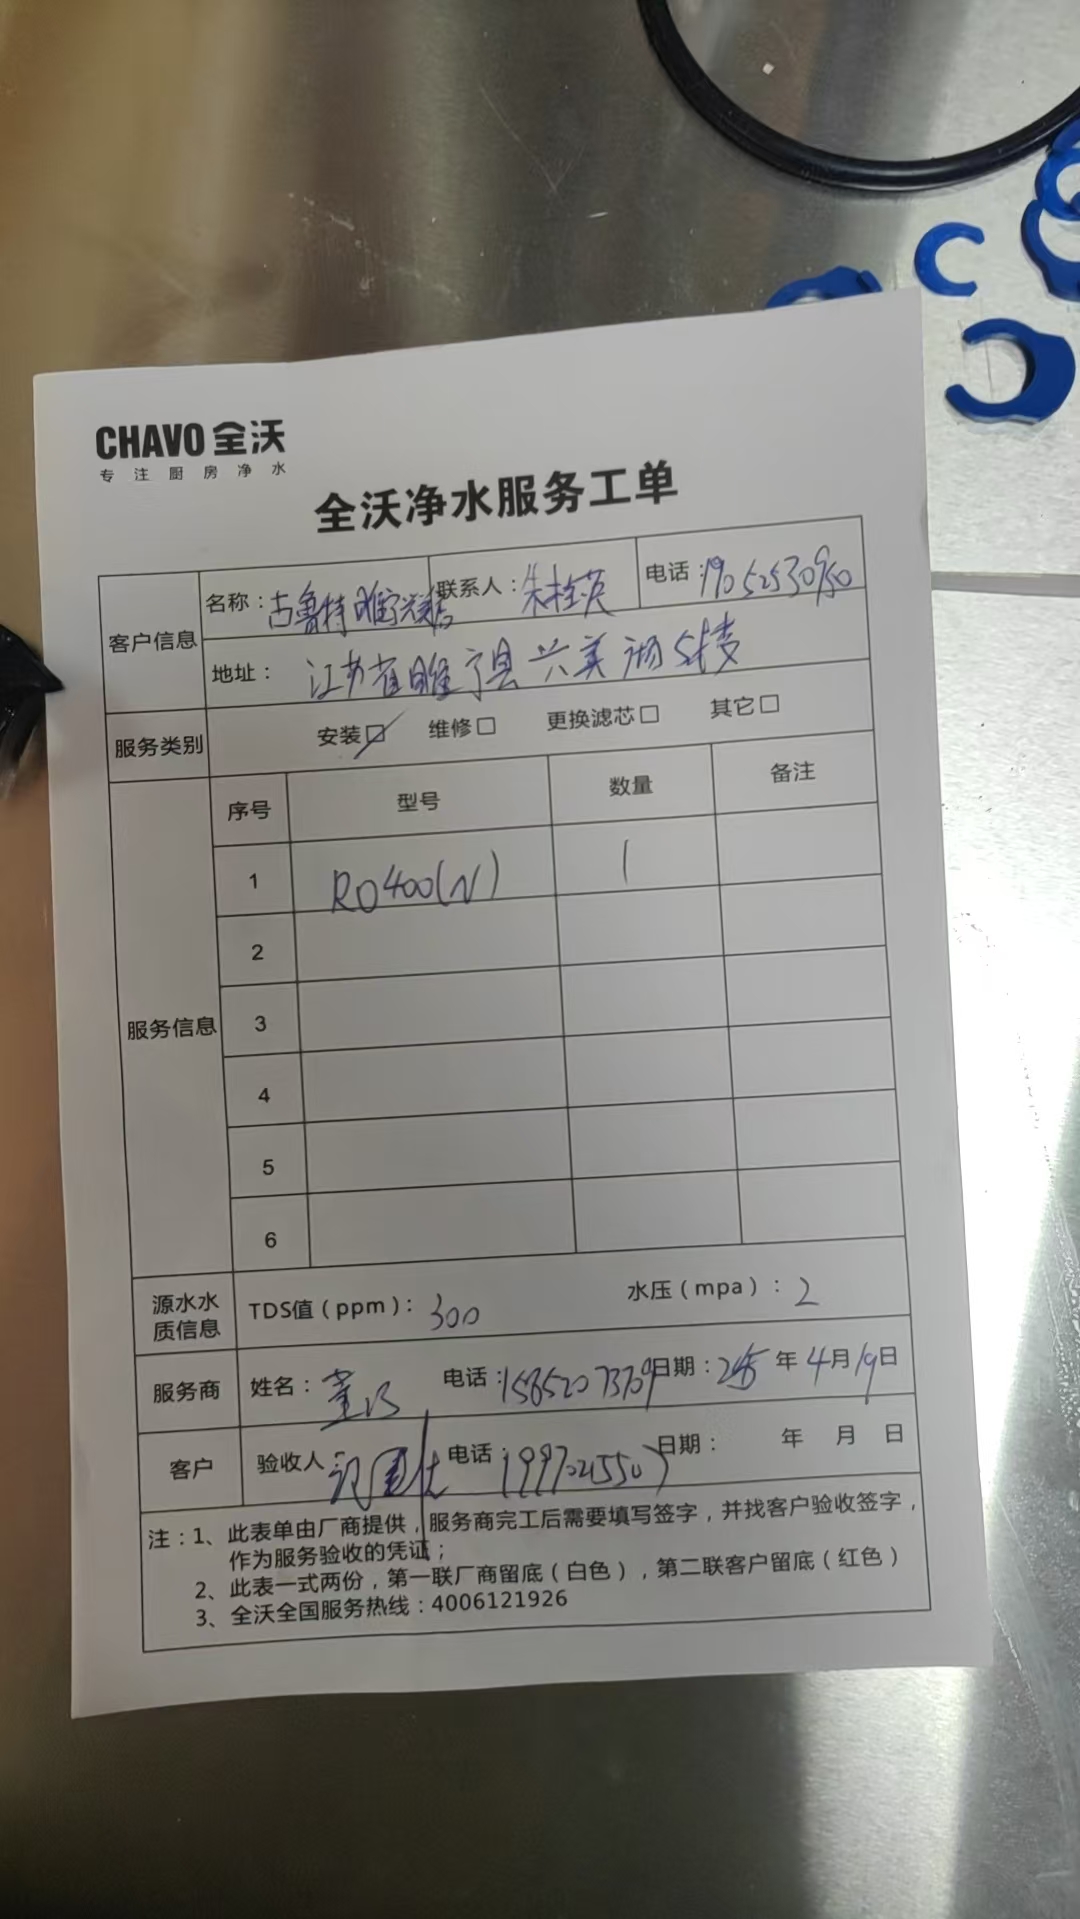 CHAVO 全沃
专注厨房净水
全沃净水服务工单
客户信息
名称：古鲁特睢宁兴美店 联系人：朱桂英 电话：19052530950
地址：江苏省睢宁县兴美 5楼
服务类别 安装☑ 维修□ 更换滤芯□ 其它□
服务信息
序号 型号 数量 备注
1 RO400(N) 1
2
3
4
5
6
源水水质信息 TDS值（ppm）：300 水压（mpa）：2
服务商 姓名：董 电话：15852073709 日期：年 4月19日
客户 验收人 电话： 日期： 年 月 日
注：1、此表单由厂商提供，服务商完工后需要填写签字，并找客户验收签字，
作为服务验收的凭证；
2、此表一式两份，第一联厂商留底（白色），第二联客户留底（红色）
3、全沃全国服务热线：4006121926